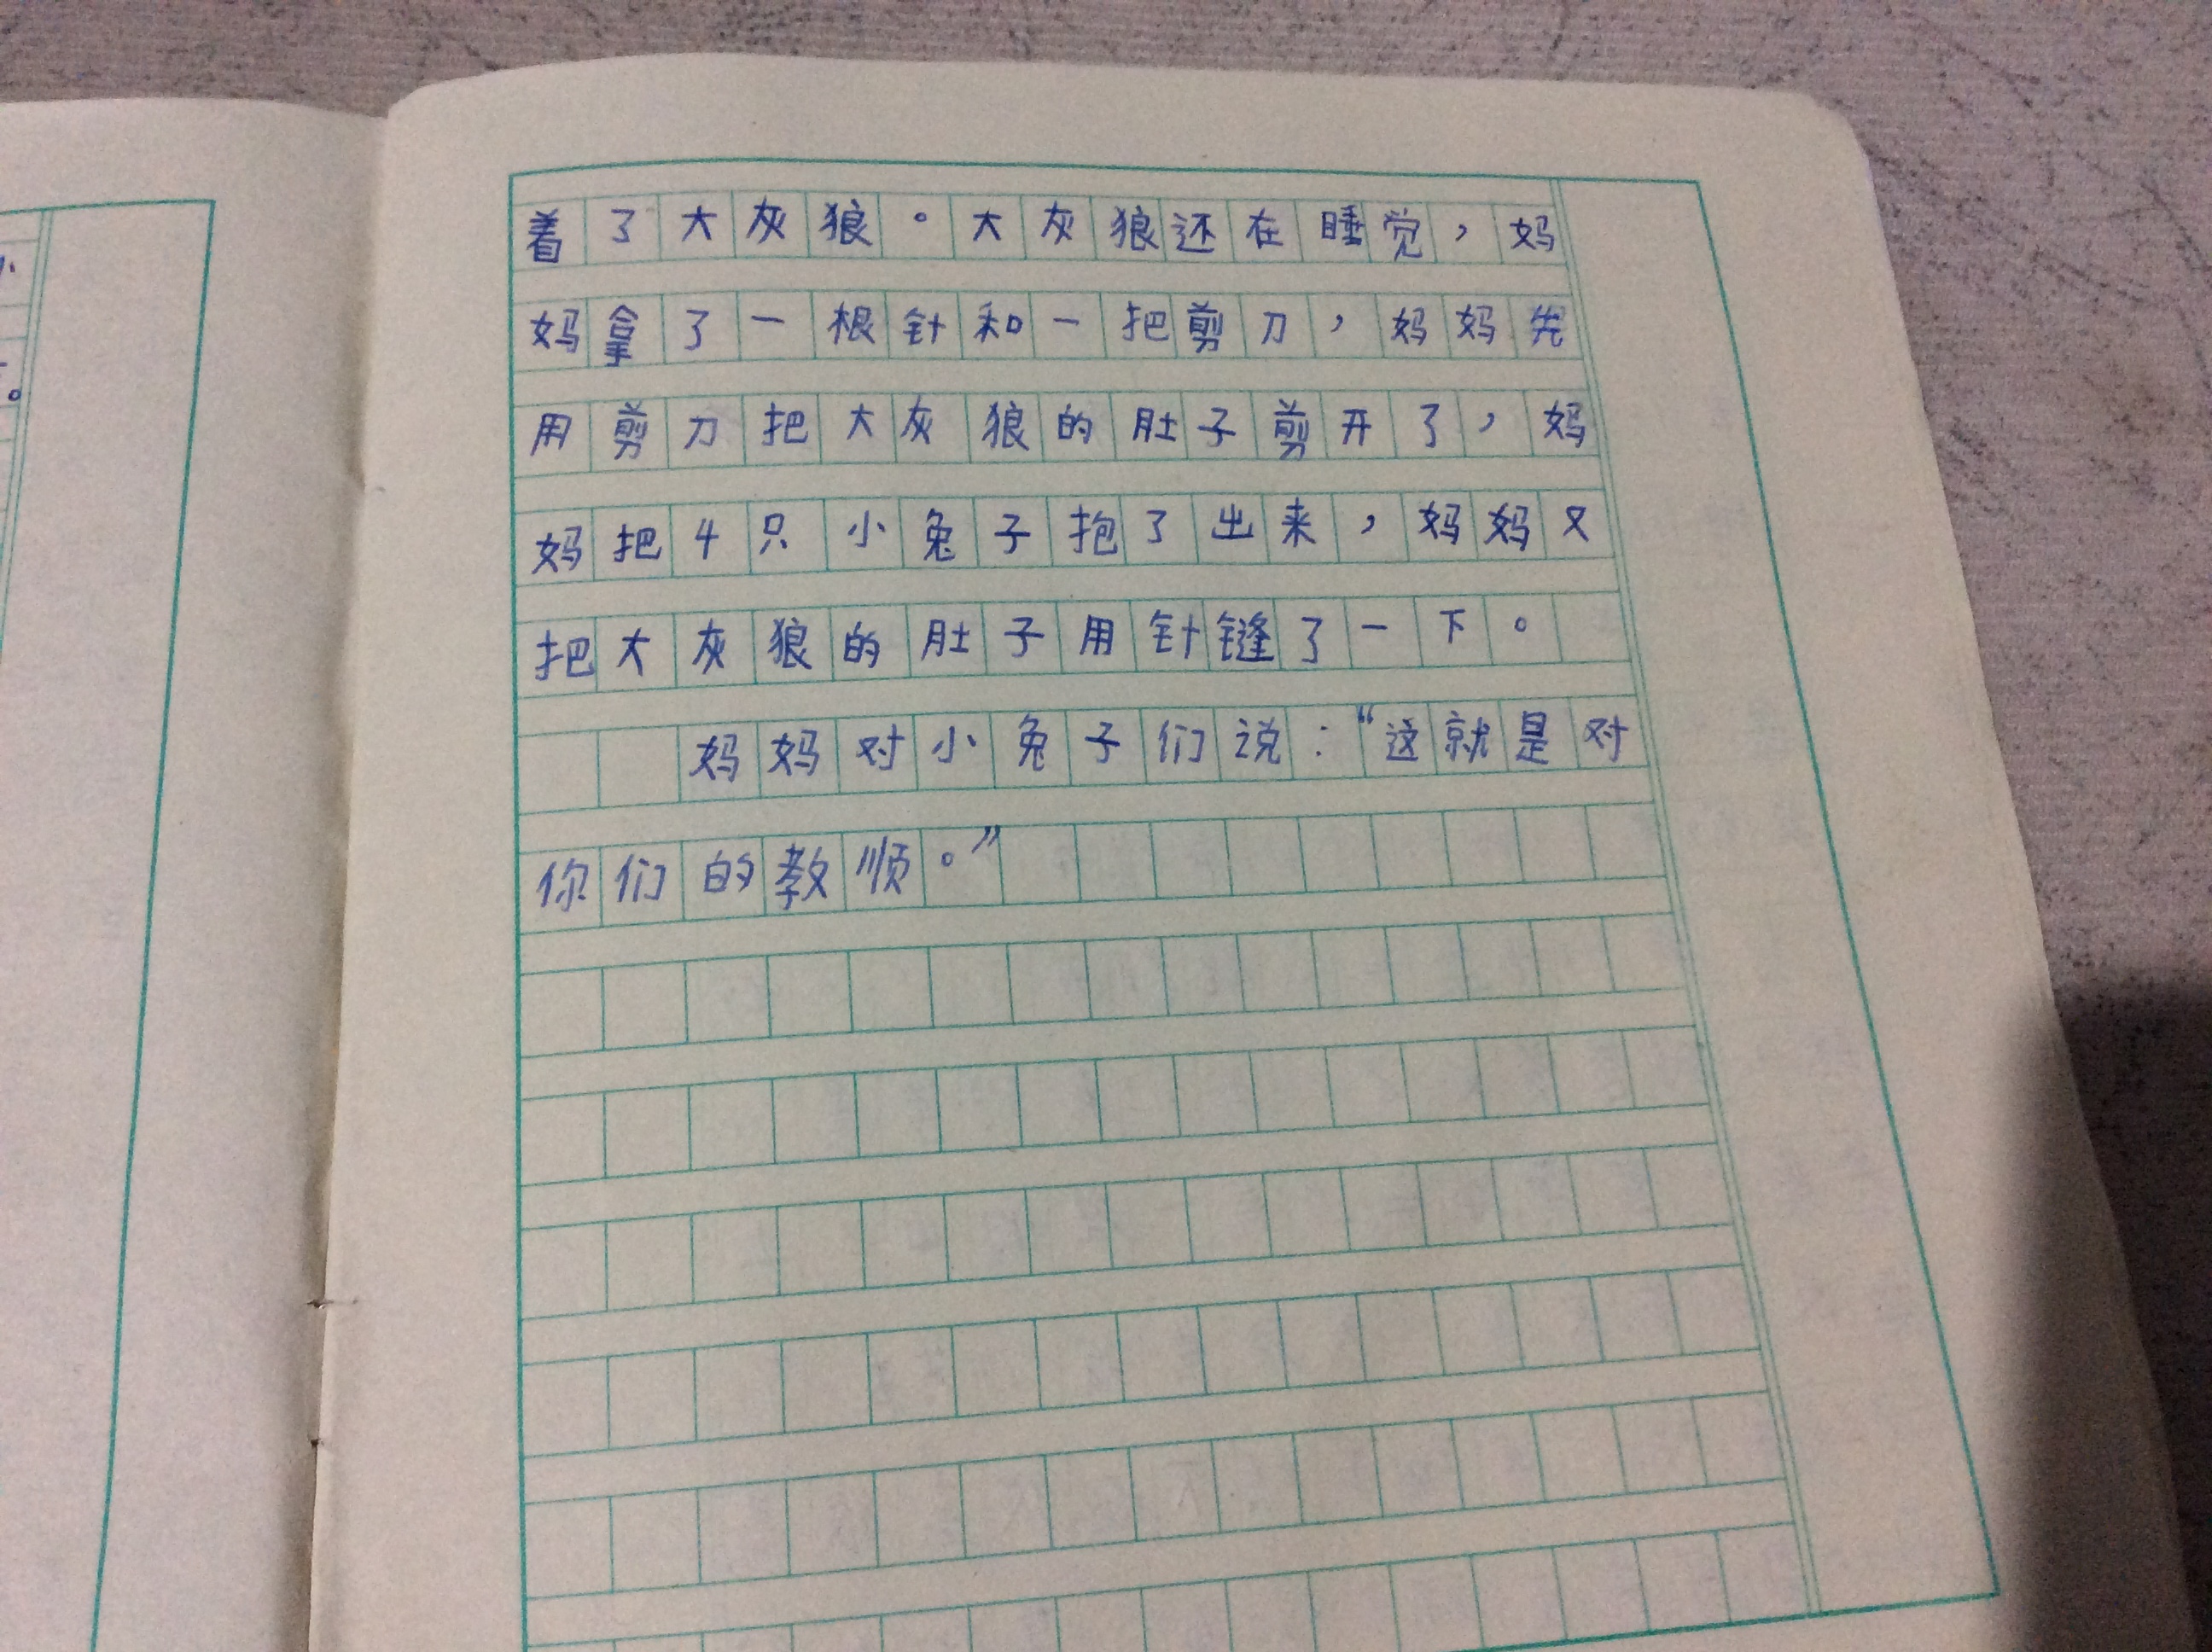 着了大灰狼。大灰狼还在睡觉，妈
妈拿了一根针和一把剪刀，妈妈先
用剪刀把大灰狼的肚子剪开了，妈
妈把4只小兔子抱了出来，妈妈又
把大灰狼的肚子用针缝了一下。
妈妈对小兔子们说：“这就是对
你们的教顺。”